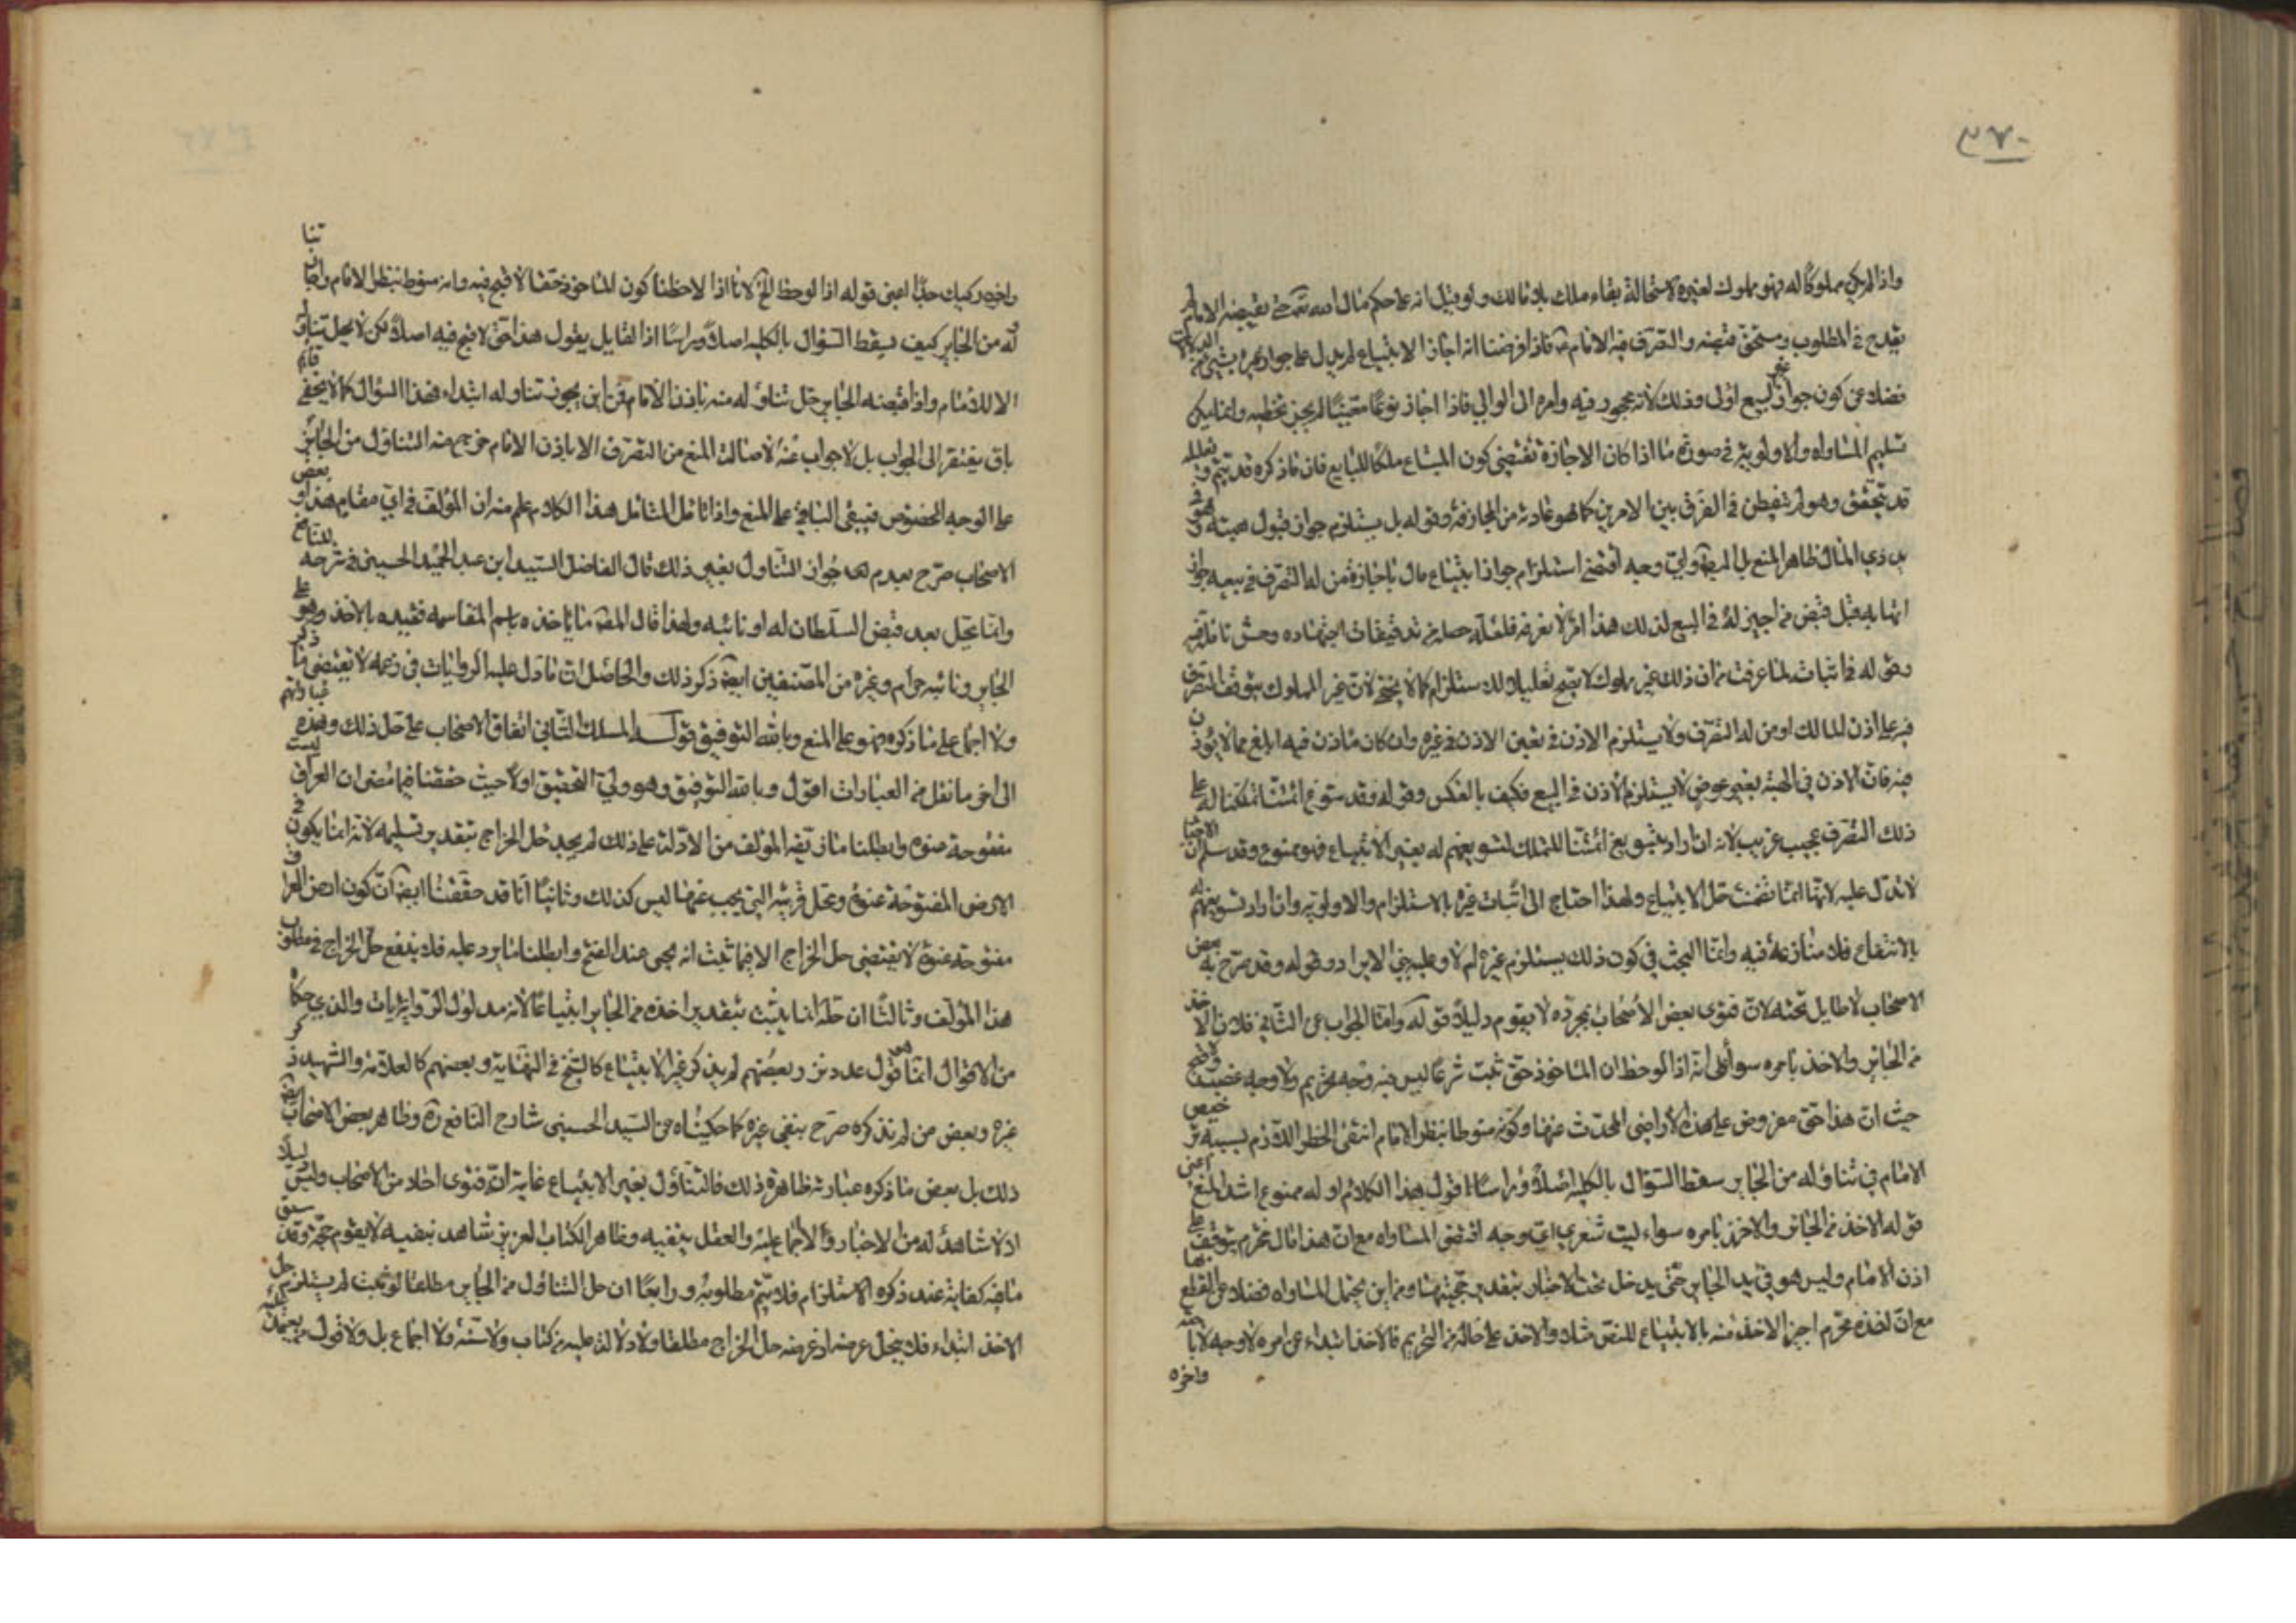 ٣٧٠
واذا لم يكن مملوكا له فهو مملوك لغيره لاستحالة بقاء ملك بلا مالك ولو قيل انه على حكم مال الله
يقدح في المطلوب ومستحق قبضه والتصرف فيه الامام فاذا فرضنا انه اجاز الابتياع لم يدل على جواز غيره بشيء
فضلا عن كون جواز غير البيع اولى وذلك لانه محجور فيه وامره الى الوالي فاذا اجاز نوعا معينا لم يجز تخطيه وانما يمكن
تسليم المساواه والاولوية في صورة ما اذا كان الاجازة تقتضي كون المبتاع ملكا للبايع فان ما ذكره قد يتم
قد يتحقق وهو لم يتفطن في الفرق بين الامرين كما هو عادته من المجازفة وقوله بل يستلزم جواز قبول هبته وهو في
يد ذي المال ظاهر المنع بل واي وجه اقتضى استلزام جواز ابتياع مال باجازة من له التصرف في بيعه جواز
اتهابه قبل قبض من اجيز له في البيع لذلك هذا امر لا نعرفه فلعله حصل من تدقيقات اجتهاده وحسن تامله
وقوله في اثبات لما عرفت من ان ذلك غير مملوك لا يقع تعليلا لذلك ستلزام كما لا يخفى لان غير المملوك يتوقف التصرف
فيه على اذن المالك او من له التصرف ولا يستلزم الاذن في بعض الاذن في غيره وان كان ما اذن فيه ابلغ مما لا يؤذن
فيه فان الاذن في الهبة بغير عوض لا يستلزم الاذن في البيع فكيف بالعكس وقوله وقد سوغ ائمتنا تملكنا له على
ذلك التصرف عجيب غريب لانه ان اراد بتسويغ ائمتنا للتملك تسويغهم له بغير الابتياع فهو ممنوع وقد سلم ان الاخبار
لا تدل عليه لانها انما تضمنت حل الابتياع ولهذا احتاج الى اثبات غيره بالاستلزام والاولوية وان اراد تسويغهم له
بالانتفاع فلا منازعة فيه وانما البحث في كون ذلك يستلزم غيره ام لا وعليه بني الايراد وقوله وقد صرح به بعض
الاصحاب لا طايل تحته لان فتوى بعض الاصحاب بمجرده لا يقوم دليلا قوله واما الجواب عن الثاني فلان الاخذ
من الجائر والاخذ بامره سواء على انه اذا لوحظ ان الماخوذ حق ثبت شرعا ليس فيه وجه تحريم ولا وجه قبح
حيث ان هذا حق مفروض على هذه الاراضي المحدث عنها وكونه منوطا بنظر الامام انتفى الحظر اللازم بسببه ترخيص
الامام في تناوله من الجاير سقط السؤال بالكلية اصلا وراسا اقول هذا الكلام اوله ممنوع اشد المنع اعني
قوله الاخذ من الجائر والاخذ بامره سواء ليت شعري اي وجه اقتضى المساواه مع ان هذا مال محرم يتوقف على
اذن الامام وليس هو في يد الجاير حتى يدخل تحت الاخبار بتقدير حجيتها ومن اين يحتمل المساواه فضلا عن القطع بها
مع ان اخذه محرم اجيز الاخذ منه بالابتياع للنص مثلا والاخذ على حاله من التحريم فالاخذ ابتداء عن امره لا وجه لاباحته
واخره
واخره ركيك جدا اعني قوله اذا لوحظ الخ لانا اذا لاحظنا كون الماخوذ حقا لا قبح فيه وانه منوط بنظر الامام واباح تنا
وله من الجاير كيف يسقط السؤال بالكلية اصلا وراسا اذ القايل يقول هذا حق لا قبح فيه اصلا لكن لا يحل تناوله
الا للامام واذا قبضه الجاير حل تناوله منه باذن الامام فمن اين يجوز تناوله ابتداء فهذا السؤال كما لا يخفى
باق يفتقر الى الجواب بل لا جواب عنه لاصالت المنع من التصرف الا باذن الامام خرج منه التناول من الجائر
على الوجه المخصوص فيبقى الباقي على المنع واذا تامل المتامل هذا الكلام علم منه ان المؤلف في اي مقام هذا وبعض
الاصحاب صرح بعدم جواز التناول بغير ذلك قال الفاضل السيد ابن عبد الحميد الحسيني في شرحه للنافع
وانما يحل بعد قبض السلطان له او نائبه ولهذا قال المصـ ما ياخذه باسم المقاسمه فقيده بالاخذ وهو على
الجاير ونائبه حرام وغيره من المصنفين ايضا ذكر ذلك والحاصل ان ما دل عليه الروايات في زعمه لا يقتضي ما ذكر
ولا اجماع على ما ذكره فهو على المنع وبالله التوفيق قوله المسلك الثاني اتفاق الاصحاب على حل ذلك وهذه عباراتهم
الى اخر ما نقل من العبارات اقول وبالله التوفيق وهو ولي التحقيق اولا حيث حققنا فيما مضى ان العراق ليست
مفتوحة عنوه وابطلنا ما زيفه المؤلف من الادلة على ذلك لم يجد حل الخراج بتقدير تسليمه لانه انما يكون في
الارض المفتوحة عنوة ومحل قريته التي يجيب عنها ليس كذلك وثانيا انا قد حققنا ايضا ان كون ارض العراق
مفتوحة عنوة لا يقتضي حل الخراج الا فيما ثبت انه محيى عند الفتح وابطلنا ما يرد عليه فلا ينفع حل الخراج في مطلوب
هذا المؤلف وثالثا ان حله انما يثبت بتقدير اخذه من الجاير ابتياعا لانه مدلول الروايات والذي حكاه
من الاقوال انما هي قول عدد نزر وبعضهم لم يذكر غير الابتياع كالشيخ في النهاية وبعضهم كالعلامة والشهيد ذكر
غيره وبعض من لم نذكره صرح بنفي غيره كما حكيناه عن السيد الحسيني شارح النافع ره وظاهر بعض الاصحاب ايضا
ذلك بل بعض ما ذكره عبارته ظاهرة في ذلك فالتناول بغير الابتياع غايته انه فتوى احاد من الاصحاب وليس دليلا
اذ لا شاهد له من الاخبار ولا الاجماع عليه والعقل ينفيه وظاهر الكتاب العزيز شاهد بنفيه لا يقوم حجة وقد سبق
ما فيه كفاية عند ذكره الاستلزام فلا يتم مطلوبه ورابعا ان حل التناول من الجاير مطلقا لو ثبت لم يستلزم حل
الاخذ ابتداء فلا يحل غرضه اذ غرضه حل الخراج مطلقا ولا دلالة عليه من كتاب ولا سنة ولا اجماع بل ولا قول من يعتمد عليه